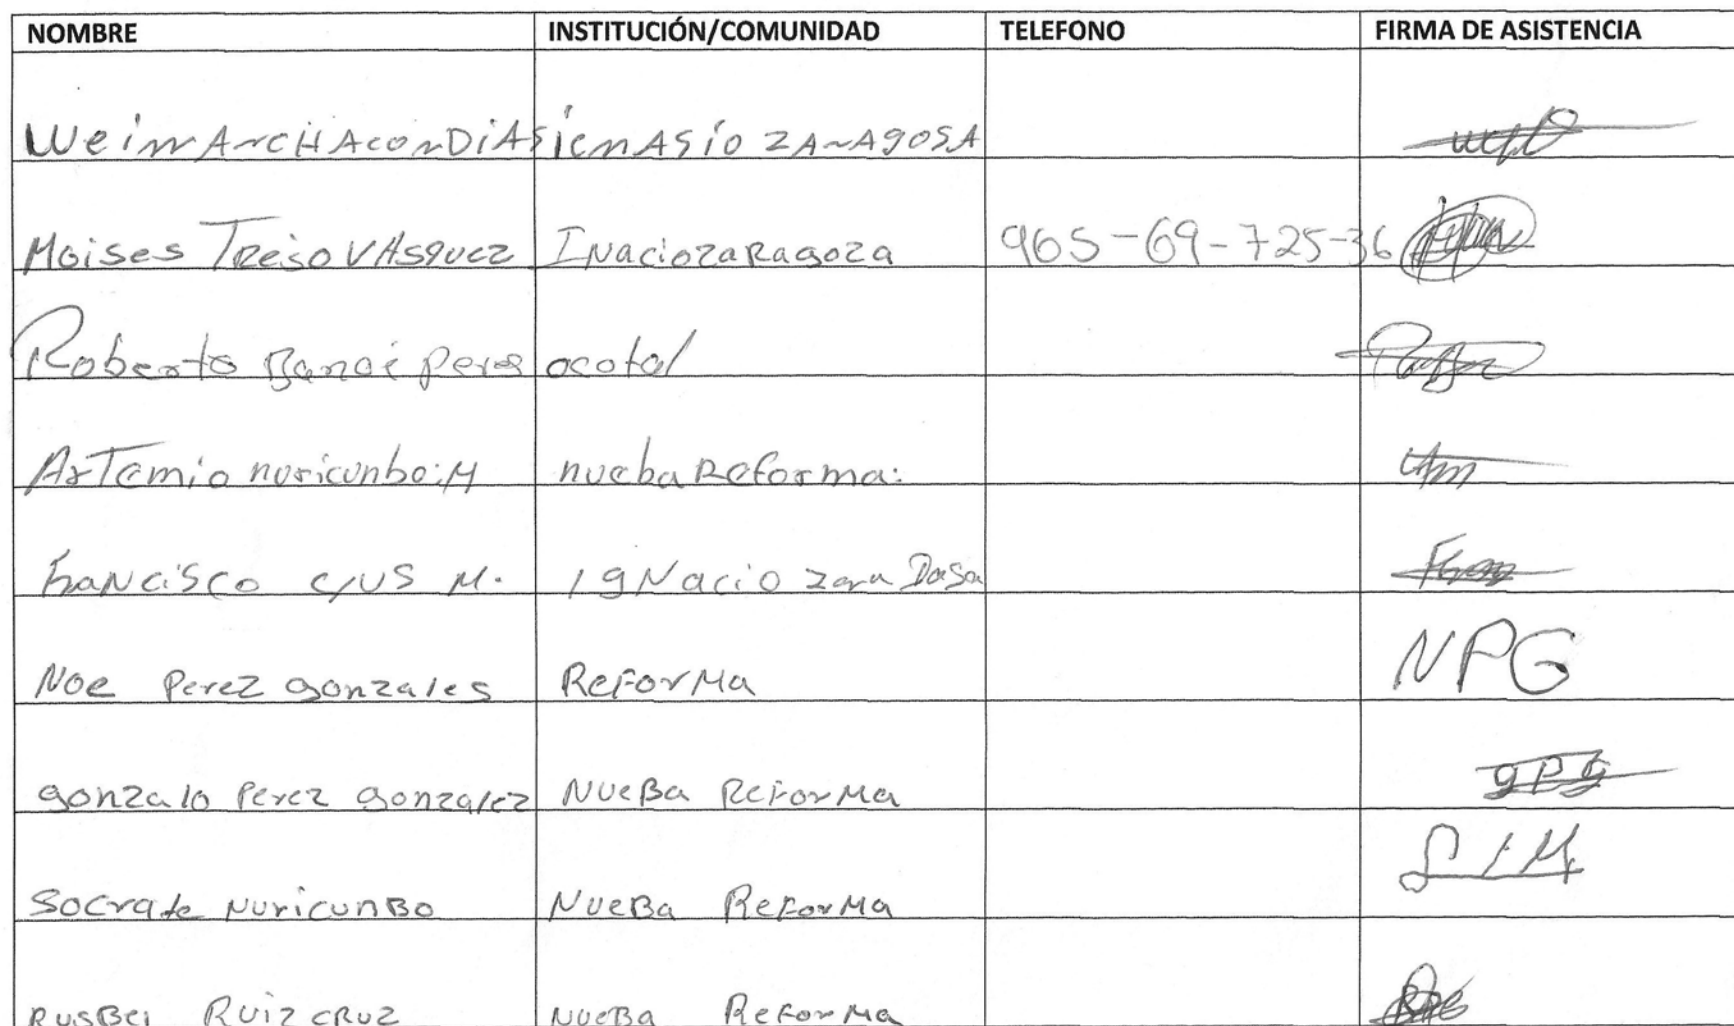 NOMBRE INSTITUCIÓN/COMUNIDAD TELEFONO FIRMA DE ASISTENCIA
WeimArCHAconDiAS icnASio ZArAgOSA
Moises Trejo VAsquez Inaciozaragoza 965-69-725-36
Roberto Perez ocotal
ArTemio nuricunbo:M nueba Reforma:
Francisco c/us M. IgNacio
Noe Perez gonzales Reforma NPG
gonzalo Perez gonzalez Nueba Reforma gPg
Socrate Nuricunbo Nueba Reforma
Rusbel Ruiz cruz Nueba Reforma